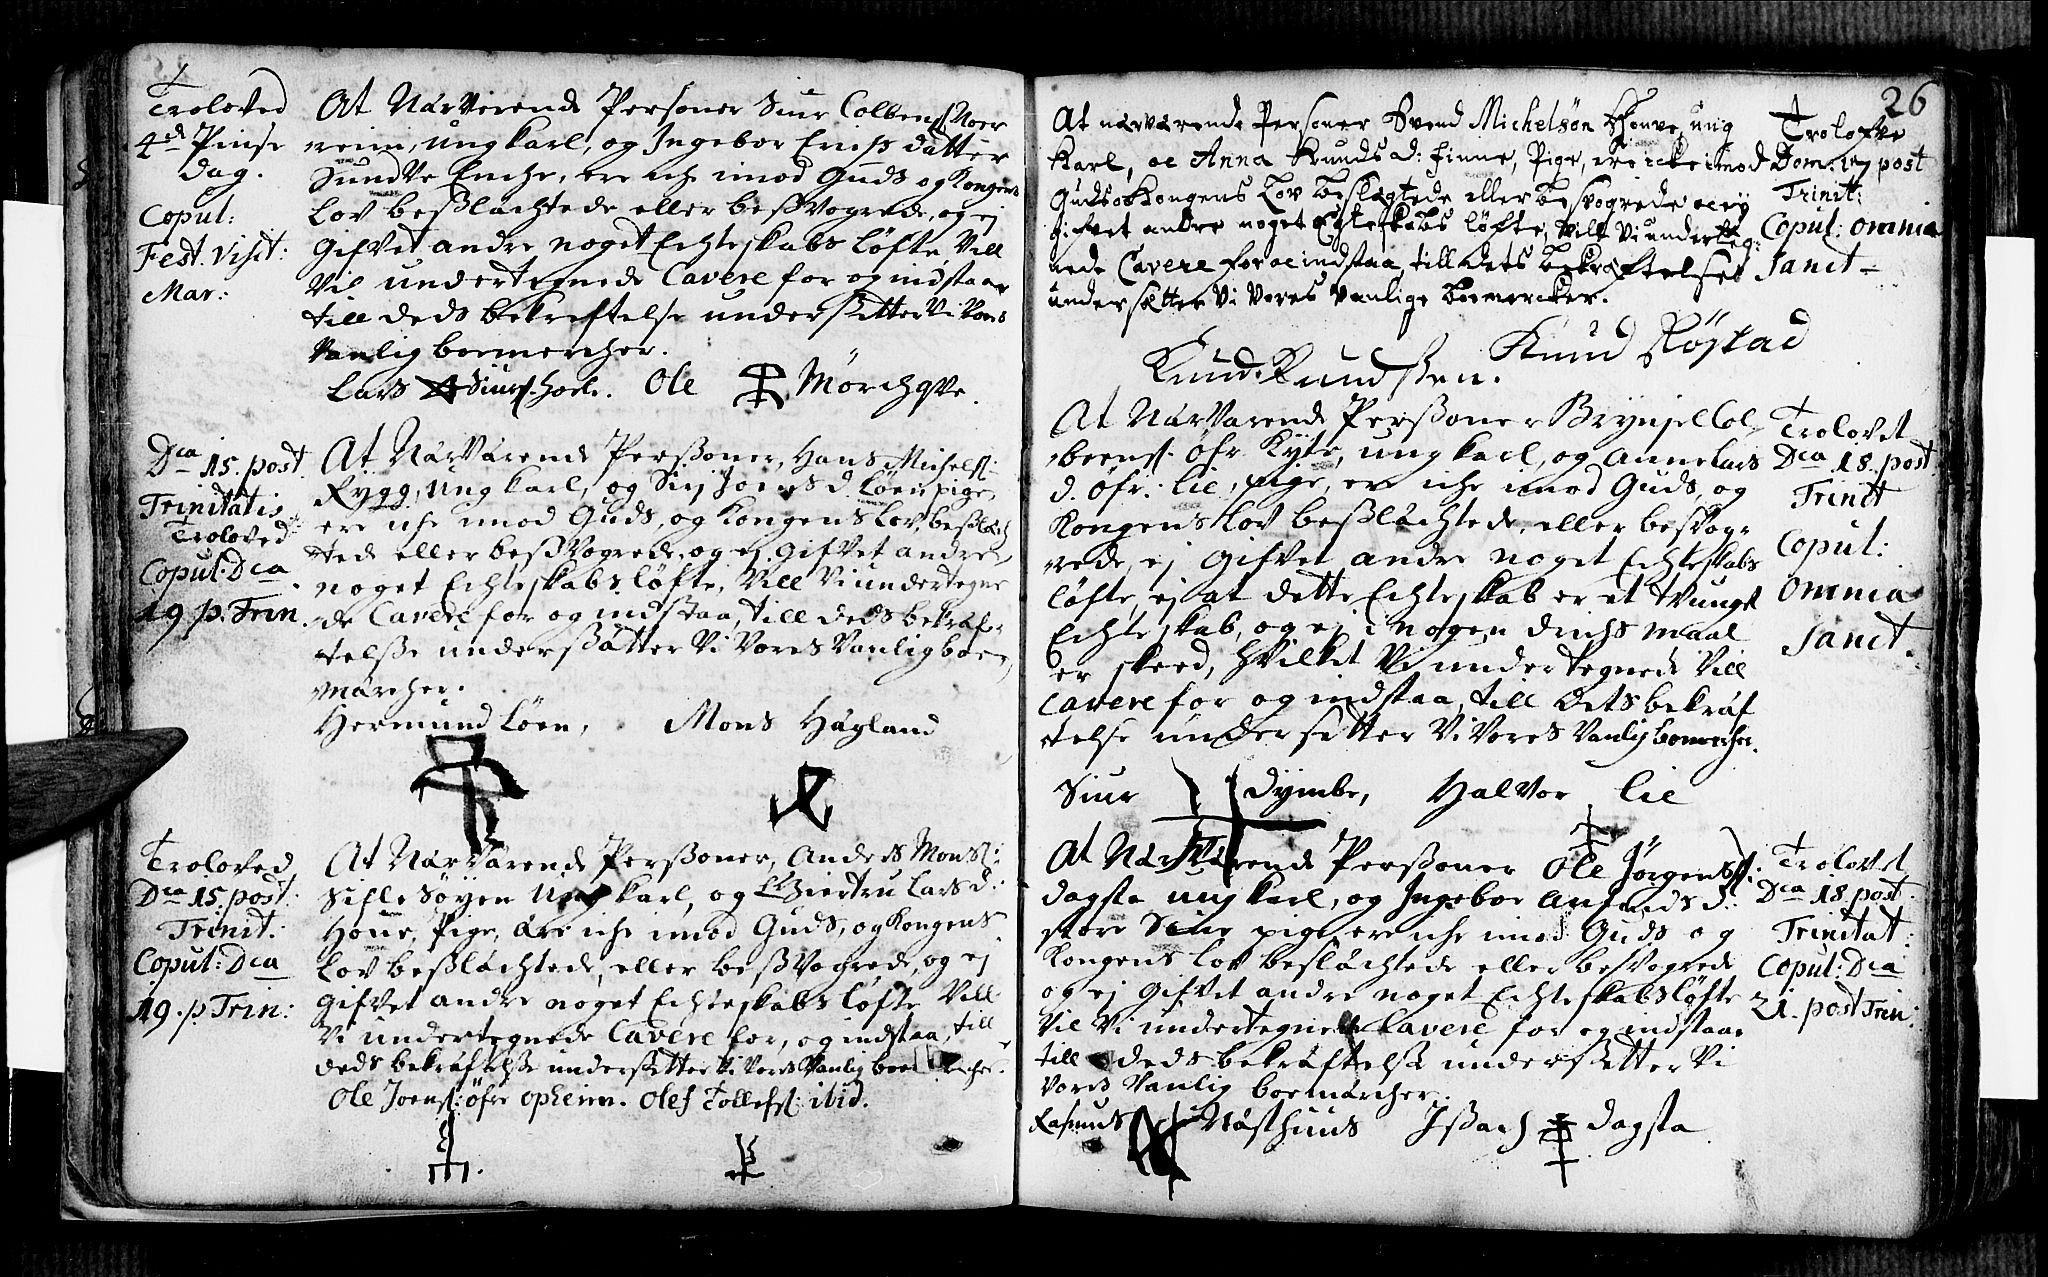 Troloved
4de Pinse
dag.
Copul:
Fest. Visit:
Mar:
At Nærverende Personer Siur Colbens: Noer
reim, ung karl, og Ingebor Erichs datter
Sundve Enche, ere iche imod Guds og Kongens
lov beßlachtede eller beßvogrede, og ej
gifvet andre noget Echteskabs løfte, Vill
Vil undertegnede Cavere for og indstaa
till deds bekreftelse undersetter Vi Vores
Vanlig boemercher.
Lars Siurs: hoele. Ole Mörchqve.
Dca 15. post
Trinitatis
Troloved
Copul: Dca
19 p. Trin.
At Nærværende Perßoner, Hans Michels:
Rygg, Ung karl, og Siri Joens d. Løen pige,
ere iche imod Guds, og Kongens lov, beßlach
tede eller beßvogrede, og ej gifvet andre
noget Echteskabs løfte, Vill Vi undertegne
de Cavere for og indstaa, till deds bekræf
telße underßætter Vi Vores Vanlig boe
mærcher.
Hermund Løen, Mons Hægland
Troloved
Dca 15. post
Trinit:
Copul: Dca
19. p Trin:
At Nærværende Perßoner, Anders Mons:
Sifle Søyen Ung karl, og Giertru Lars d:
Houe, Pige, ære iche imod Guds, og Kongens
lov beßlachtede, eller beßvogrede, og ej
gifvet andre noget Echteskabs løfte Vill
Vi undertegnede Cavere for, og indstaa, till
deds bekræftelße undersetter Vi Vores Vanlig boemercher.
Ole Joens: öfre Opheim. Olef Tollefs: ibid.
26
At nærværende Personer Svend Michelsøn Skonve, ung
Karl, oc Anna Knuds d: Finne, Pige, ere icke imod
Guds oc Kongens Lov beslegtede eller besvogrede oc ey
gifvet andre noget Egteskabs løfte, vill vi underteg:
nede Cavere for oc indstaa, till dets bekræftelse
undersætter Vi Vores Vanlige boemercker.
Knud Knudßen. Knud Røstad
Trolofve
Dom: 17 post
Trinit:
Copul: omnia
Sanct
At Nærværende Perßoner Brynjel Col
beens: øfr Kyte, ung karl, og Anne Lars
d. øfr: lie, pige, ere iche imod Guds, og
Kongens lov beßlachtede, eller besvog
rede, ej gifvet andre noget Echteskabs
løfte, ej at dette Echteskab er et tvunget
Echteskab, og ej i nogen drichs maal
er skeed, hvilket Vi undertegnede Vill
cavere for og indstaa, till dets bekræf
telse undersetter Vi Vores Vanlig bomercher.
Siur Dymbe, Halvor Lie
Trolovet
Dca 18. post
Trinit
Copul:
Omnia
Sanct.
At Nærværende Perßoner Ole Jørgens:
dagsta ung karl, og Ingebor Anfinds d:
store Siue pige ere iche imod Guds og
Kongens lov beslachtede eller besvogrede
og ej gifvet andre noget Echteskabs løfte
Vil Vi undertegnede Cavere for og indstaa
till deds bekræftelse undersetter Vi
Vores Vanlig boemærcher.
Rasmus Næsthuus Isach dagsta
Trolovet
Dca 18. post
Trinitat:
Copul: Dca
21. post Trin: